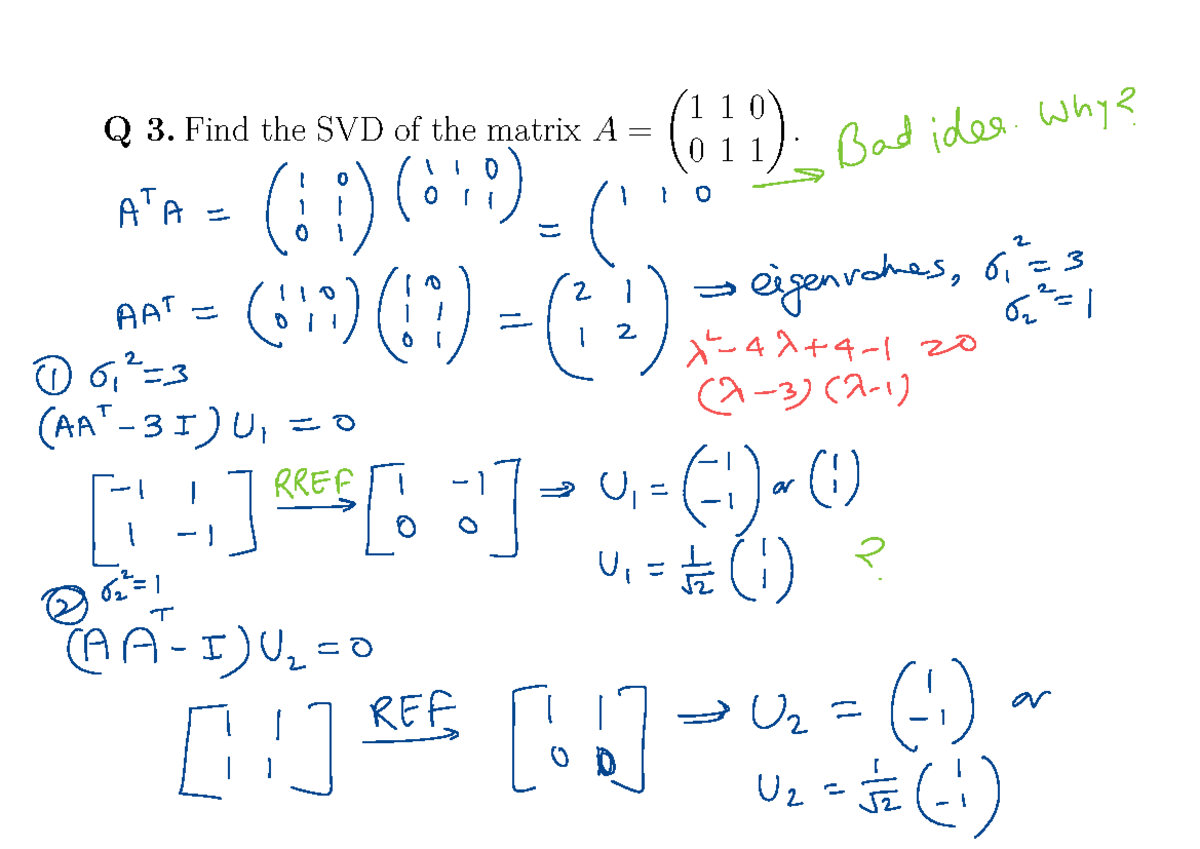 Q 3. Find the SVD of the matrix A = (1 1 0; 0 1 1).
→ Bad idea. Why?
AᵀA = (1 0; 1 1; 0 1) (1 1 0; 0 1 1) = (1 1 0
AAᵀ = (1 1 0; 0 1 1) (1 0; 1 1; 0 1) = (2 1; 1 2) ⇒ eigenvalues, σ₁² = 3
σ₂² = 1
λ² - 4λ + 4 - 1 = 0
(λ - 3) (λ - 1)
① σ₁² = 3
(AAᵀ - 3I) U₁ = 0
[-1 1; 1 -1] RREF → [1 -1; 0 0] ⇒ U₁ = (-1; -1) or (1; 1)
U₁ = 1/√2 (1; 1) ?
② σ₂² = 1
(AAᵀ - I) U₂ = 0
[1 1; 1 1] REF → [1 1; 0 0] ⇒ U₂ = (1; -1) or
U₂ = 1/√2 (1; -1)